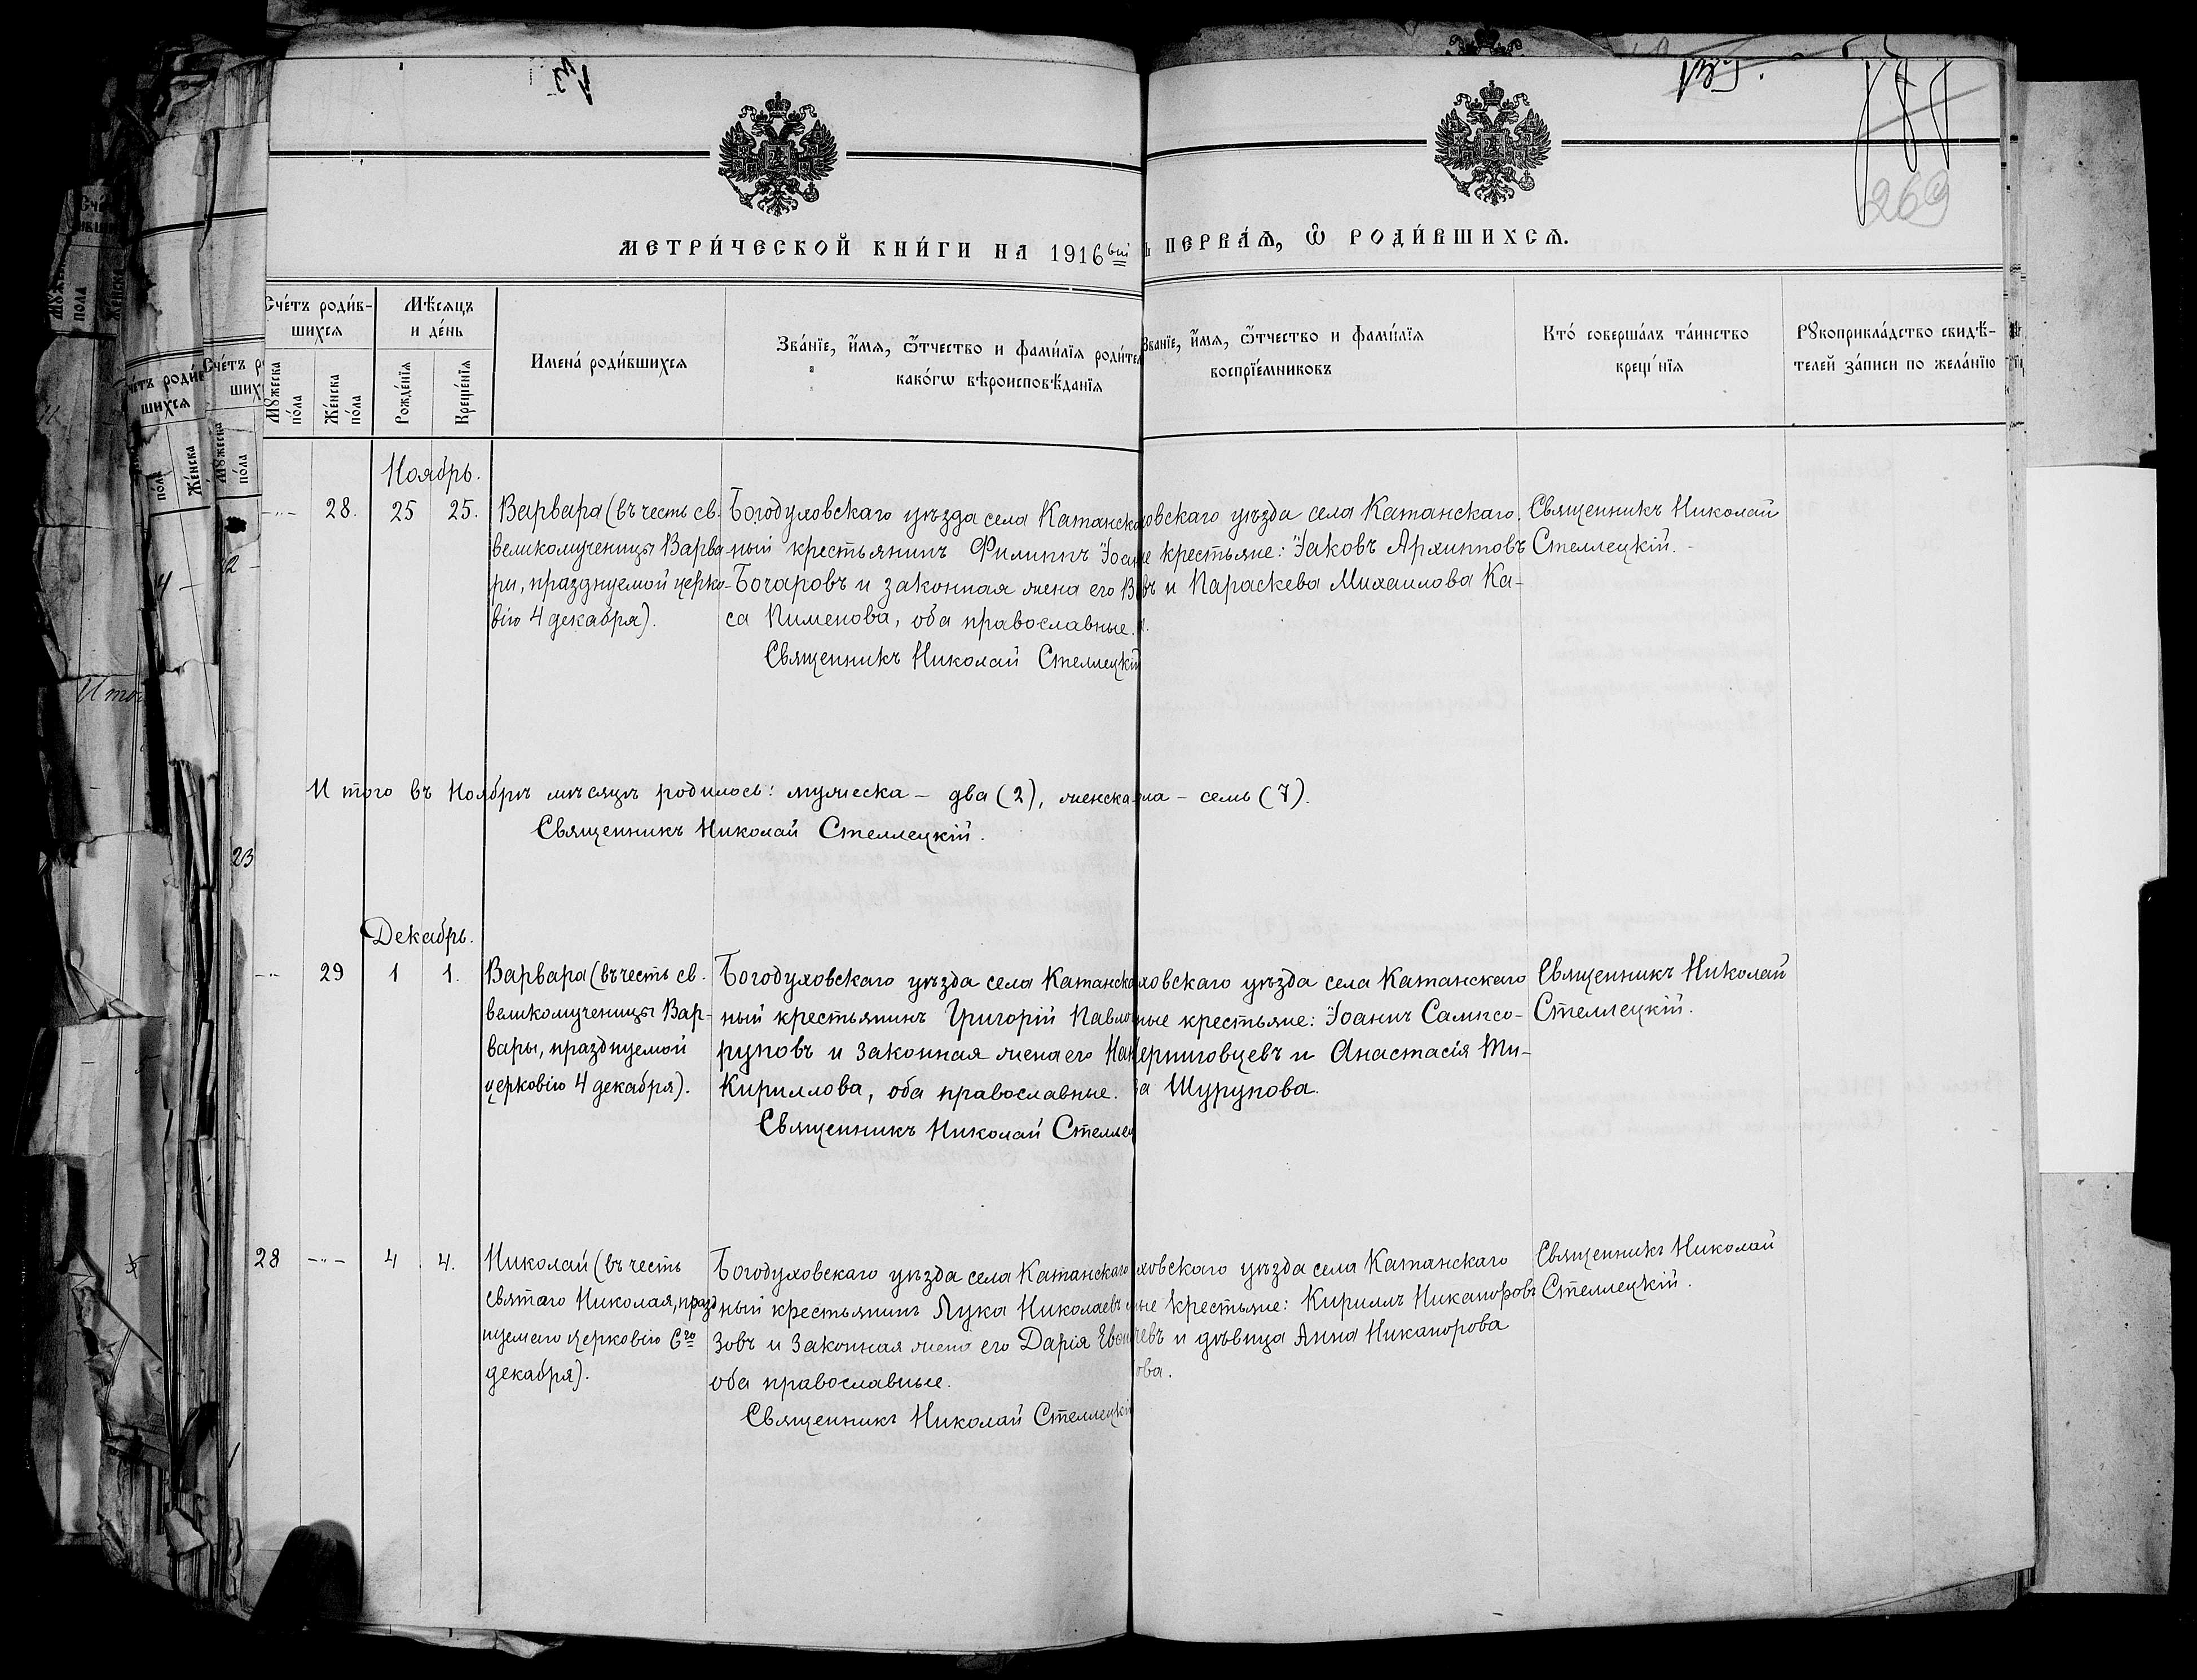 МЕТРИ́ЧЕСКОЙ КНИ́ГИ НА 1916ый
ПЕРВА́Ѧ, Ѽ РОДИ́ВШИХСѦ.
269
Сче́тъ роди́в-
шихсѧ
Мѣ́сяцъ
и де́нь
Мꙋ́жеска
по́ла
Же́нска
по́ла
Рожде́нїѧ
Креще́нїѧ
Имена́ роди́вшихсѧ
Зва́нїе, и҆́мѧ, ѻ҆́тчество и фами́лїѧ родите
како́гѡ вѣроисповѣ́данїѧ
Зва́нїе, и҆́мѧ, ѻ҆́тчество и фами́лїѧ
воспрїе́мниковъ
Кто́ соверша́лъ та́инство
креще́нїѧ
Рꙋкоприкла́дство свидѣ́-
телей за́писи по жела́нїю
Ноябрь.
28. 25 25.
Варвара (въ честь св.
великомученицы Варва
ры, празднуемой церко-
вію 4 декабря).
Богодуховскаго уѣзда села Катанска
ный крестьянинъ Филиппъ Іоан
Бочаровъ и законная жена его В
са Пименова, оба православные.
Священникъ Николай Стеллецкій
овскаго уѣзда села Катанскаго.
е крестьяне: Іаковъ Архипповъ
въ и Параскева Михаилова Ка-
Священникъ Николай
Стеллецкій.
Итого въ Ноябрѣ мѣсяцѣ родилось: мужеска – два (2), женска
ла – семь (7).
Священникъ Николай Стеллецкій.
Декабрь.
29 1 1.
Варвара (въ честь св.
великомученицы Вар-
вары, празднуемой
церковію 4 декабря).
Богодуховскаго уѣзда села Катанска
ный крестьянинъ Григорій Павло
руповъ и законная жена его На
Кириллова, оба православные.
Священникъ Николай Стеллец
ховскаго уѣзда села Катанскаго
ные крестьяне: Іоаннъ Сампсо-
Черниговцевъ и Анастасія Ти-
ва Шурупова.
Священникъ Николай
Стеллецкій.
28 4 4.
Николай (въ честь
святаго Николая, празд
нуемаго церковію 6го
декабря).
Богодуховскаго уѣзда села Катанскаго
ный крестьянинъ Лука Николаевъ
зовъ и законная жена его Дарія Евѳи
оба православные.
Священникъ Николай Стеллецкій
ховскаго уѣзда села Катанскаго
ные крестьяне: Кириллъ Никаноровъ
чевъ и дѣвица Анна Никанорова
ова.
Священникъ Николай
Стеллецкій.